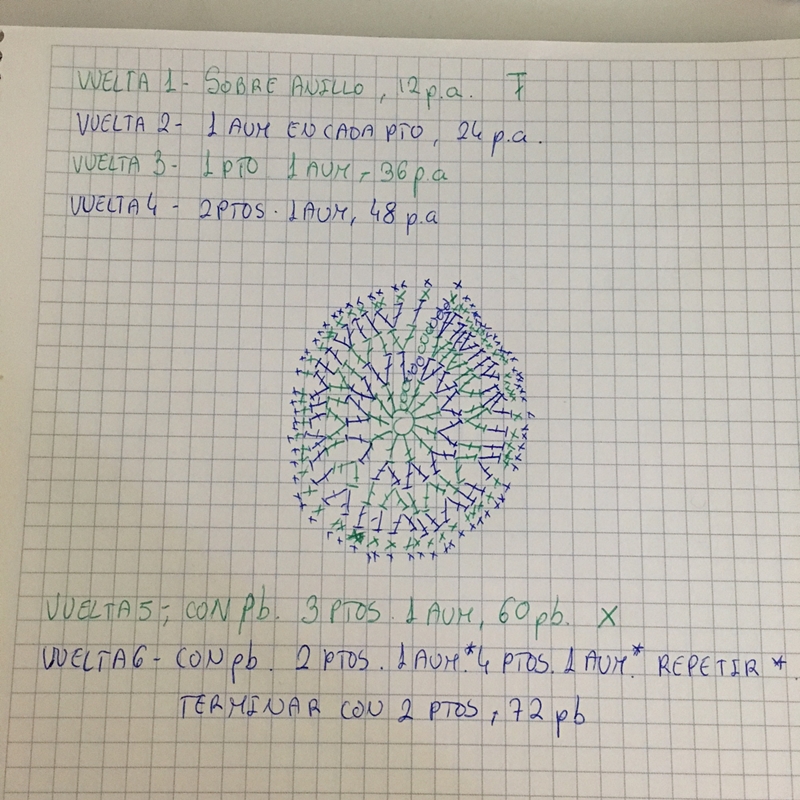 VUELTA 1- SOBRE ANILLO, 12 p.a. T
VUELTA 2- 1 AUM EN CADA PTO, 24 p.a.
VUELTA 3- 1 PTO 1 AUM, 36 p.a
VUELTA 4 - 2 PTOS. 1 AUM, 48 p.a
VUELTA 5; CON pb. 3 PTOS. 1 AUM, 60 pb. X
VUELTA 6 - CON pb. 2 PTOS. 1 AUM.*4 PTOS. 1 AUM.* REPETIR *.
TERMINAR CON 2 PTOS, 72 pb